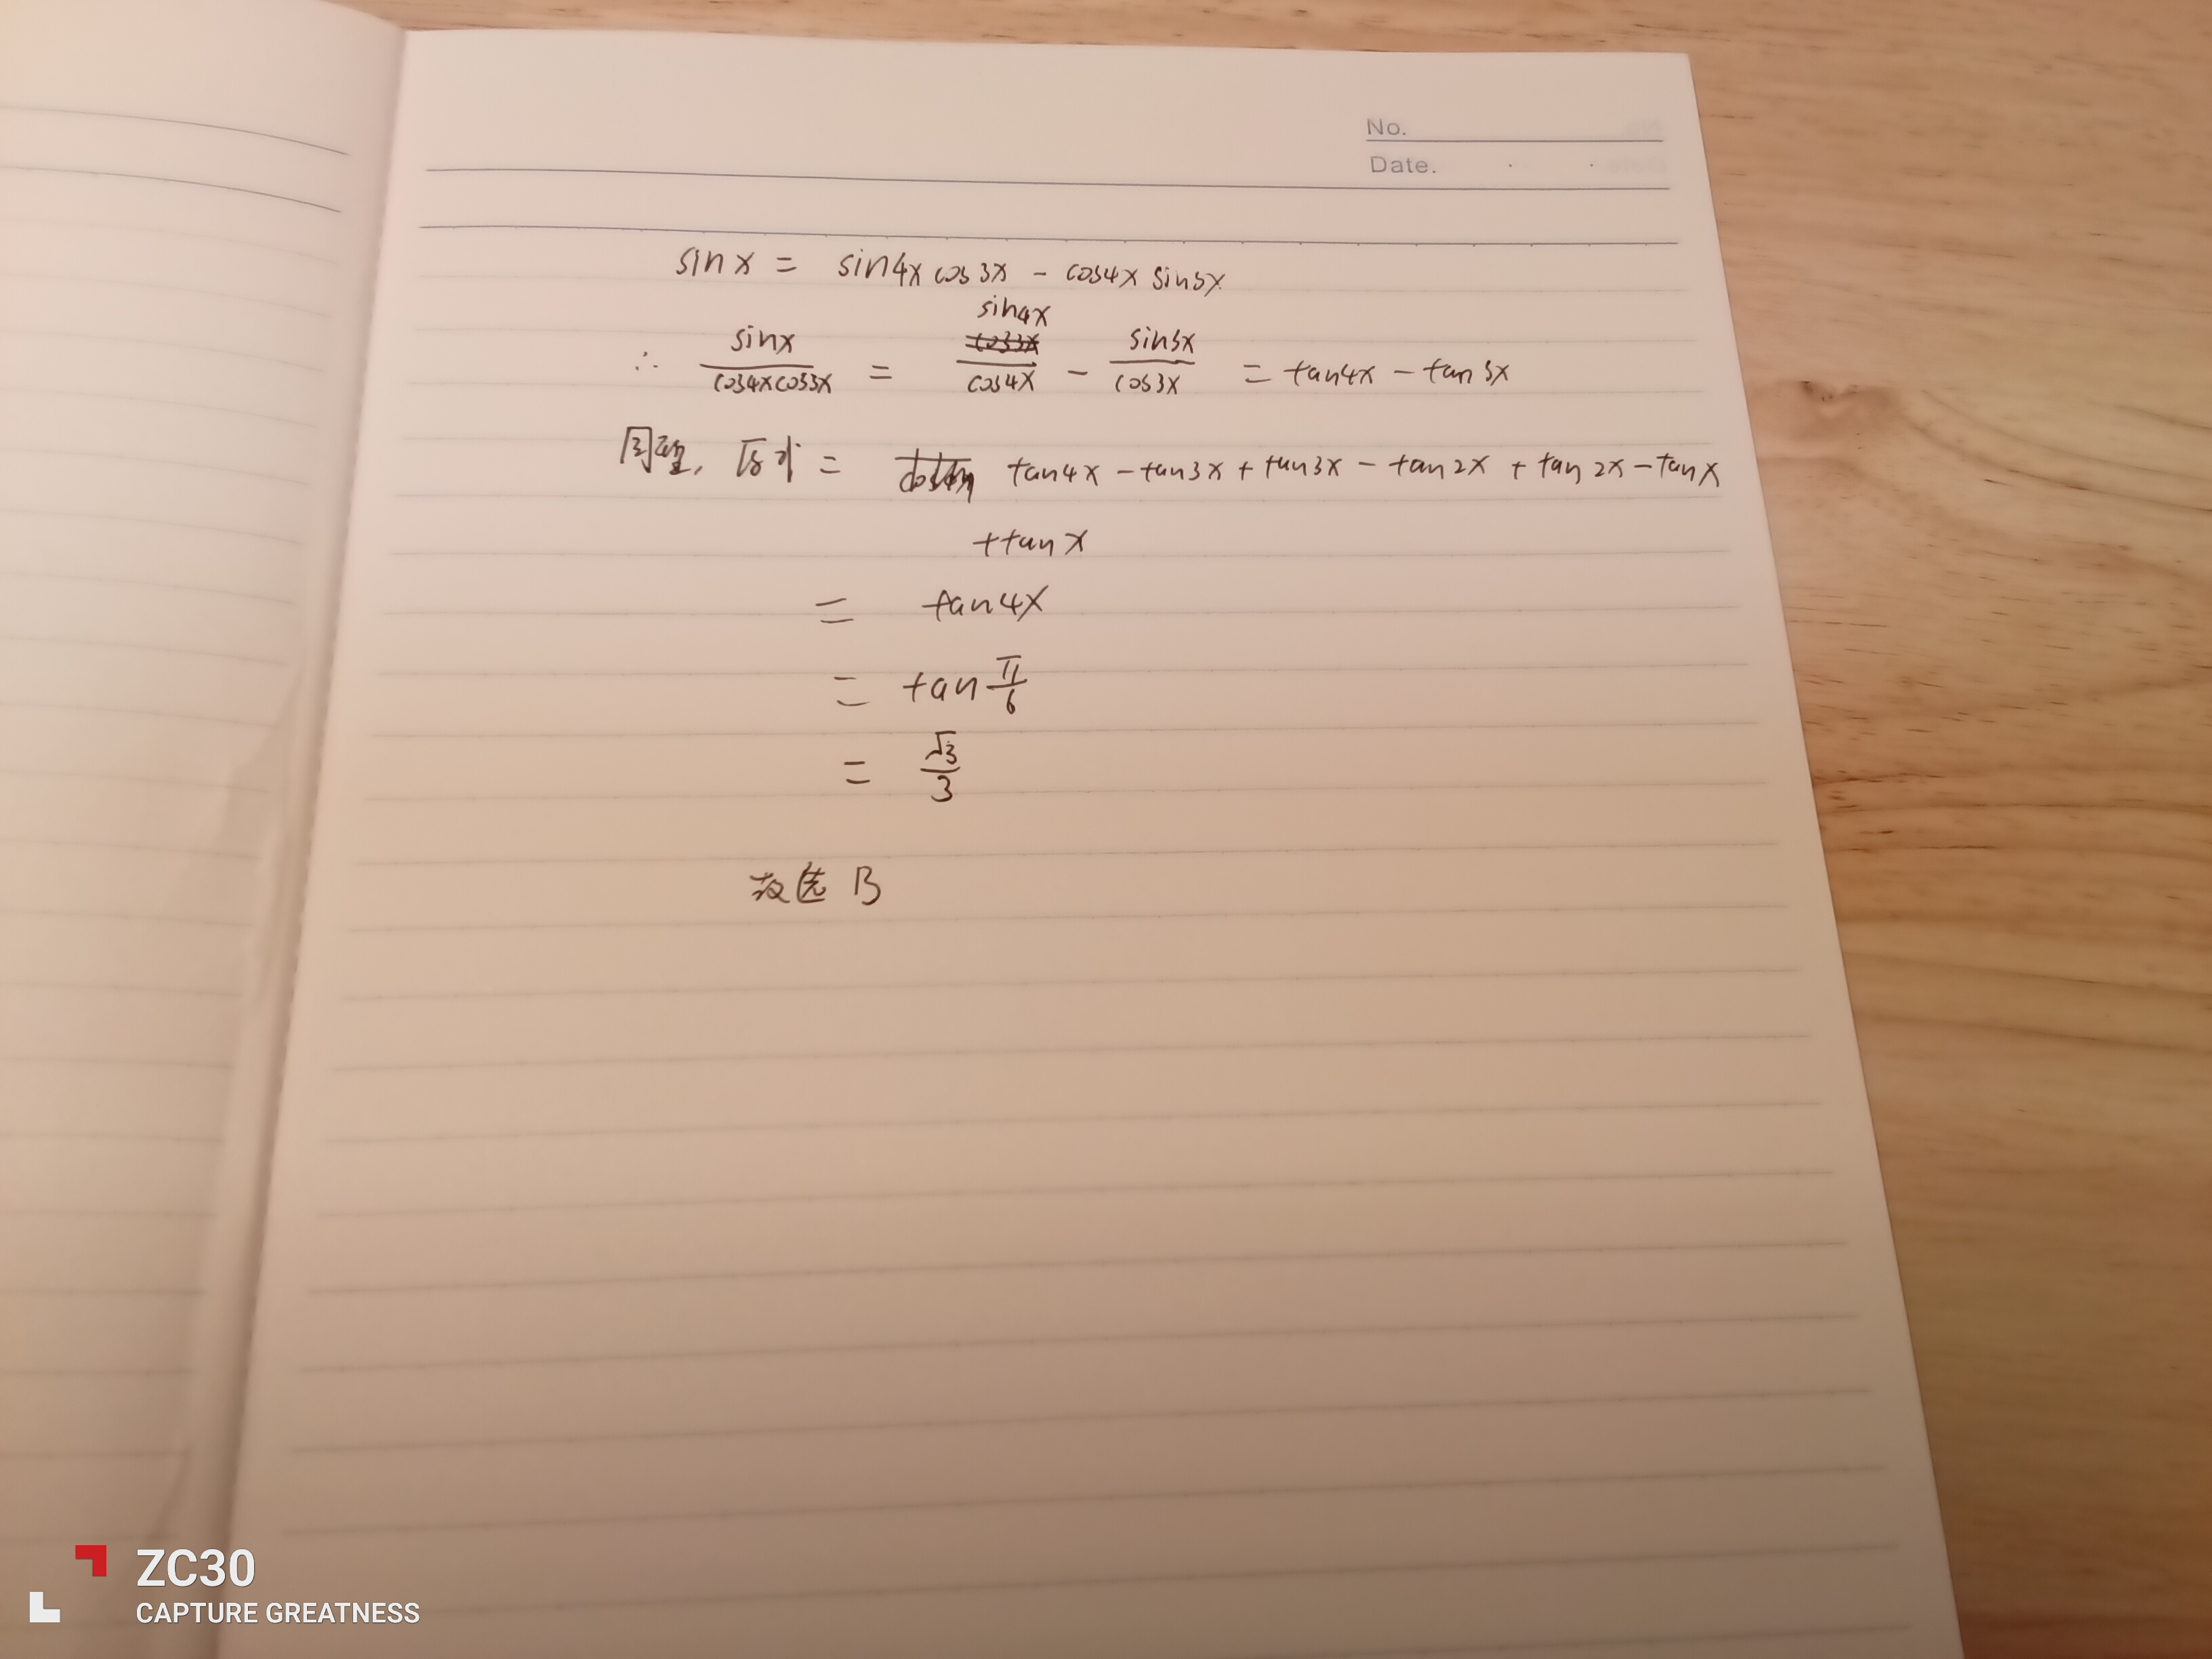 No.
Date.
sin x = sin4x cos3x - cos4x sin3x
∴ sinx/cos4xcos3x = sin4x/cos4x - sin3x/cos3x = tan4x - tan3x
同理, 原式 = tan4x - tan3x + tan3x - tan2x + tan2x - tanx
+tanx
= tan4x
= tan π/6
= √3/3
故选 B
ZC30
CAPTURE GREATNESS